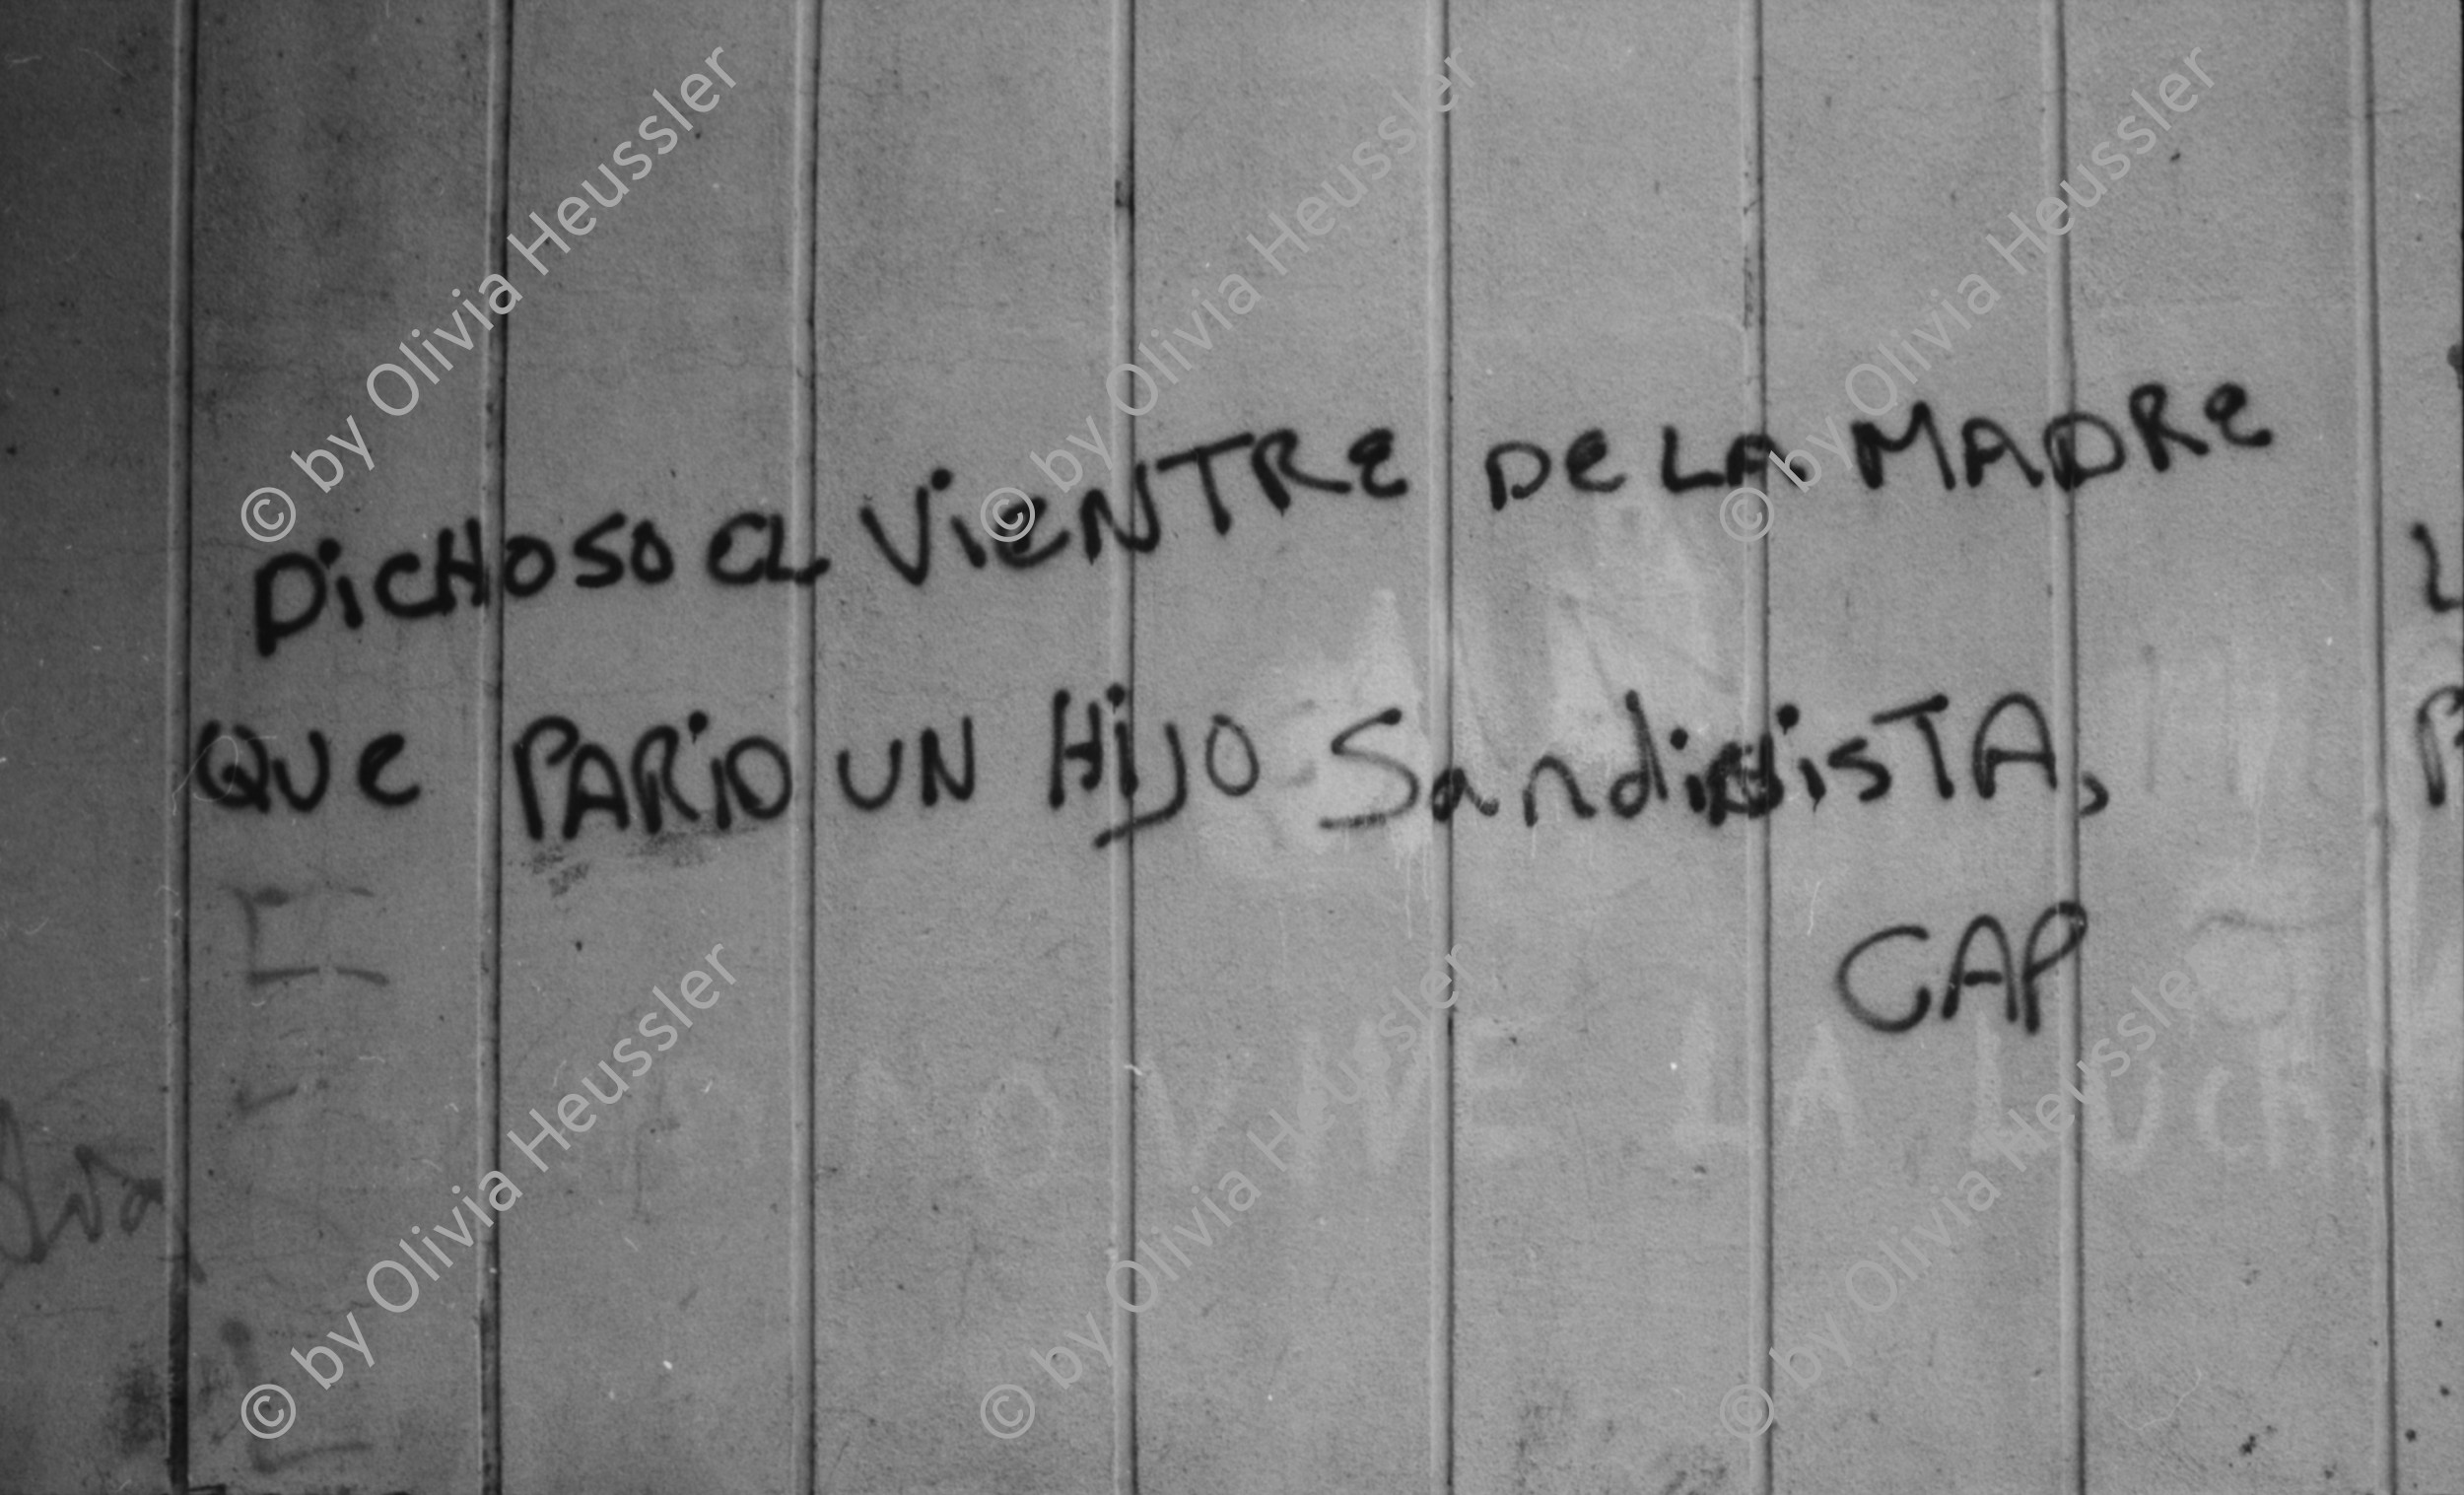 DiCHOSO eL VieNTRe De LA MADRe
QUe PARiO UN HiJO SandiNiSTA,
CAP
VIVE LA LUCH
© by Olivia Heussler
© by Olivia Heussler
© by Olivia Heussler
© by Olivia Heussler
© by Olivia Heussler
© by Olivia Heussler